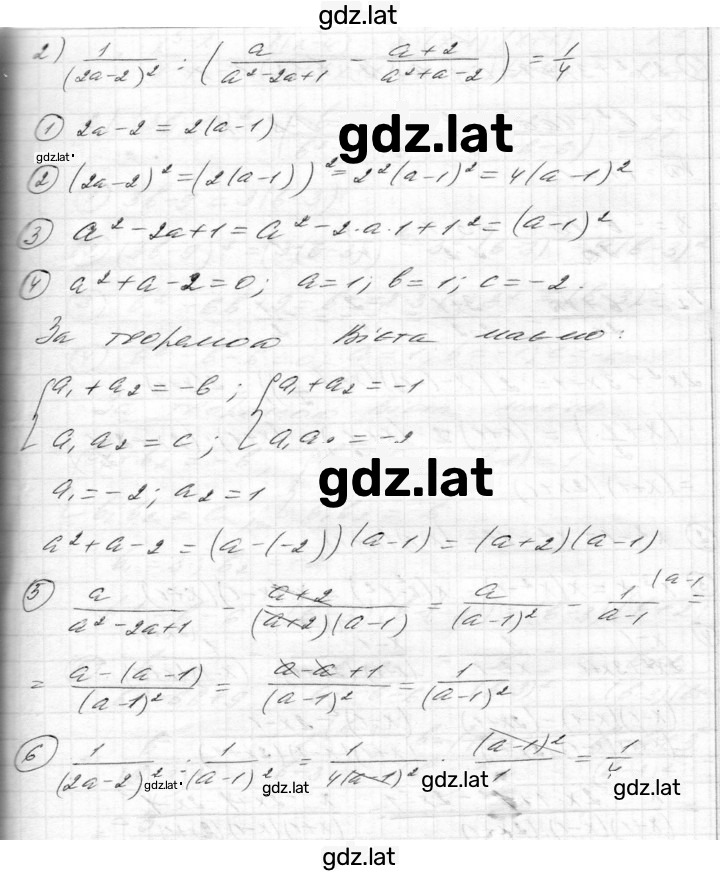 gdz.lat
2) 1/(2a-2)² : ( a/(a²-2a+1) - (a+2)/(a²+a-2) ) = 1/4
① 2a-2 = 2(a-1)
gdz.lat
gdz.lat
② (2a-2)² = (2(a-1))² = 2²(a-1)² = 4(a-1)²
③ a²-2a+1 = a²-2·a·1+1² = (a-1)²
④ a²+a-2=0; a=1; b=1; c=-2.
За теоремою Вієта маємо:
{ a₁+a₂=-b; { a₁+a₂=-1
a₁a₂=c; a₁a₂=-2
a₁=-2; a₂=1
gdz.lat
a²+a-2 = (a-(-2))(a-1) = (a+2)(a-1)
⑤ a/(a²-2a+1) - (a+2)/((a+2)(a-1)) = a/(a-1)² - 1/(a-1) (a-1 =
= (a-(a-1))/(a-1)² = (a-a+1)/(a-1)² = 1/(a-1)²
⑥ 1/(2a-2)² : 1/(a-1)² = 1/(4(a-1)²) · (a-1)²/1 = 1/4
gdz.lat
gdz.lat
gdz.lat
gdz.lat
gdz.lat